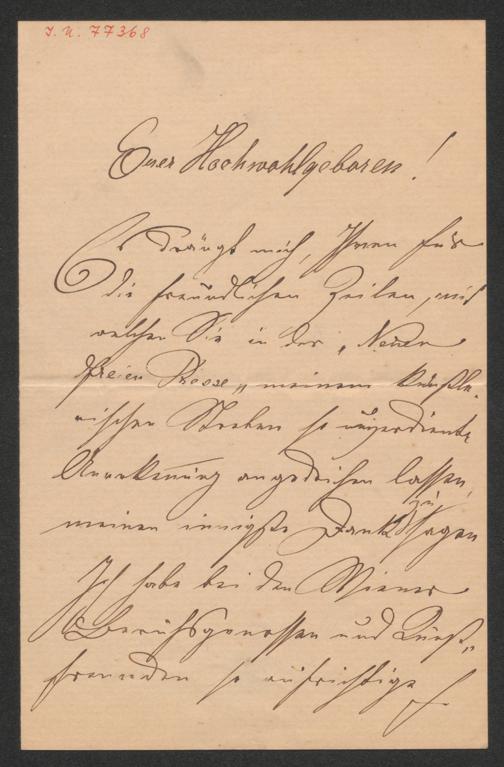 I. N. 77368
Euer Hochwohlgeboren!
Es drängt mich, Ihnen für
die freundlichen Zeilen, mit
welchen Sie in der „Neuen
freien Presse„ meinem künstle-
rischen Streben so unverdiente
Anerkennung angedeihen lassen,
meinen innigsten Dank zu sagen
Ich habe bei den Wiener
Berufsgenossen und Kunst„
freunden so aufrichtige